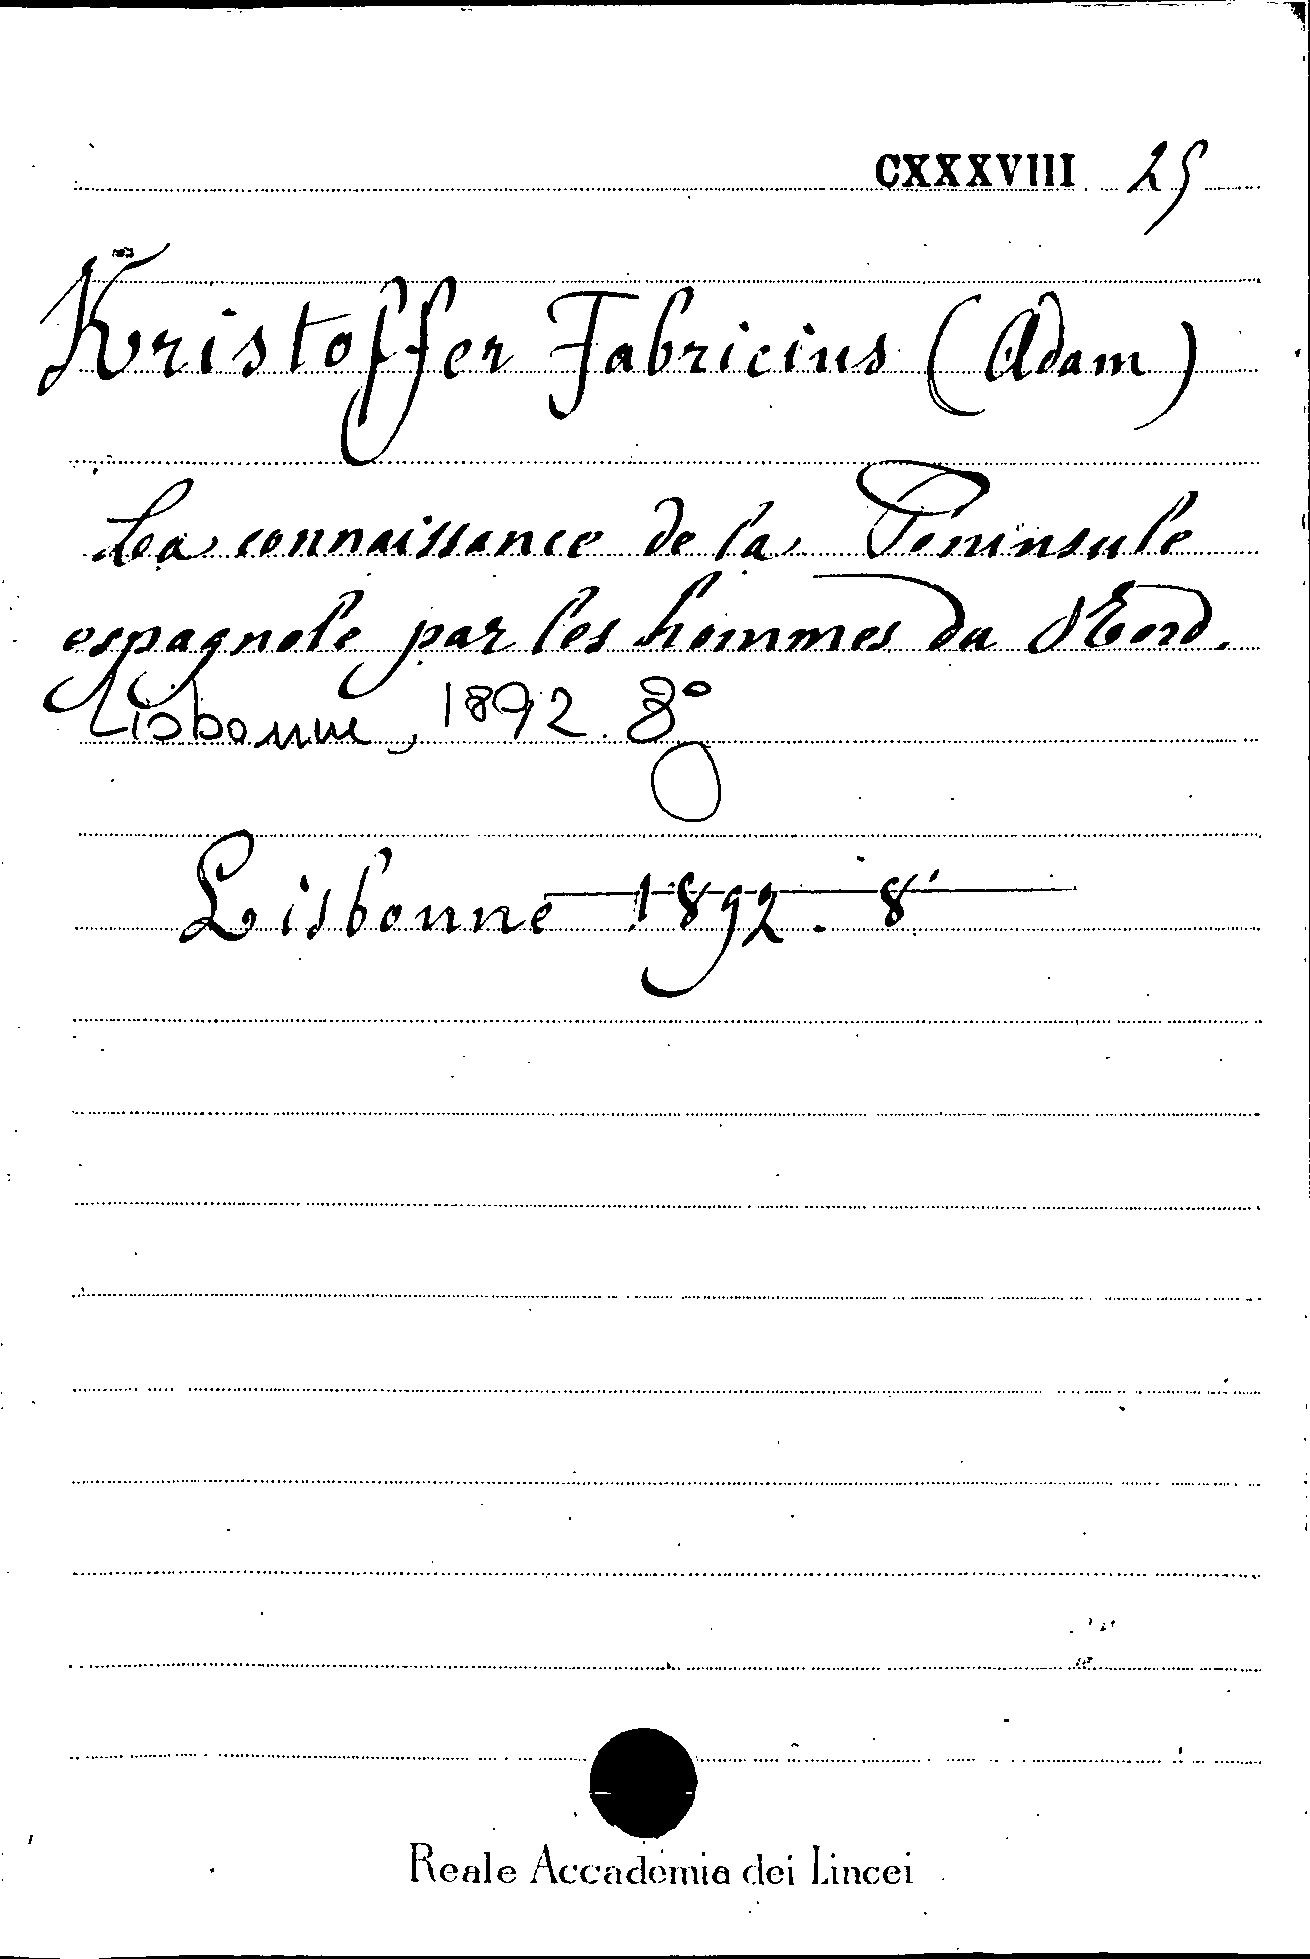 CXXXVIII 25
Kristoffer Fabricius (Adam)
La connaissance de la Peninsule
espagnole par les hommes du Nord.
Lisbonne, 1892. 8°
Lisbonne 1892. 8°
Reale Accademia dei Lincei